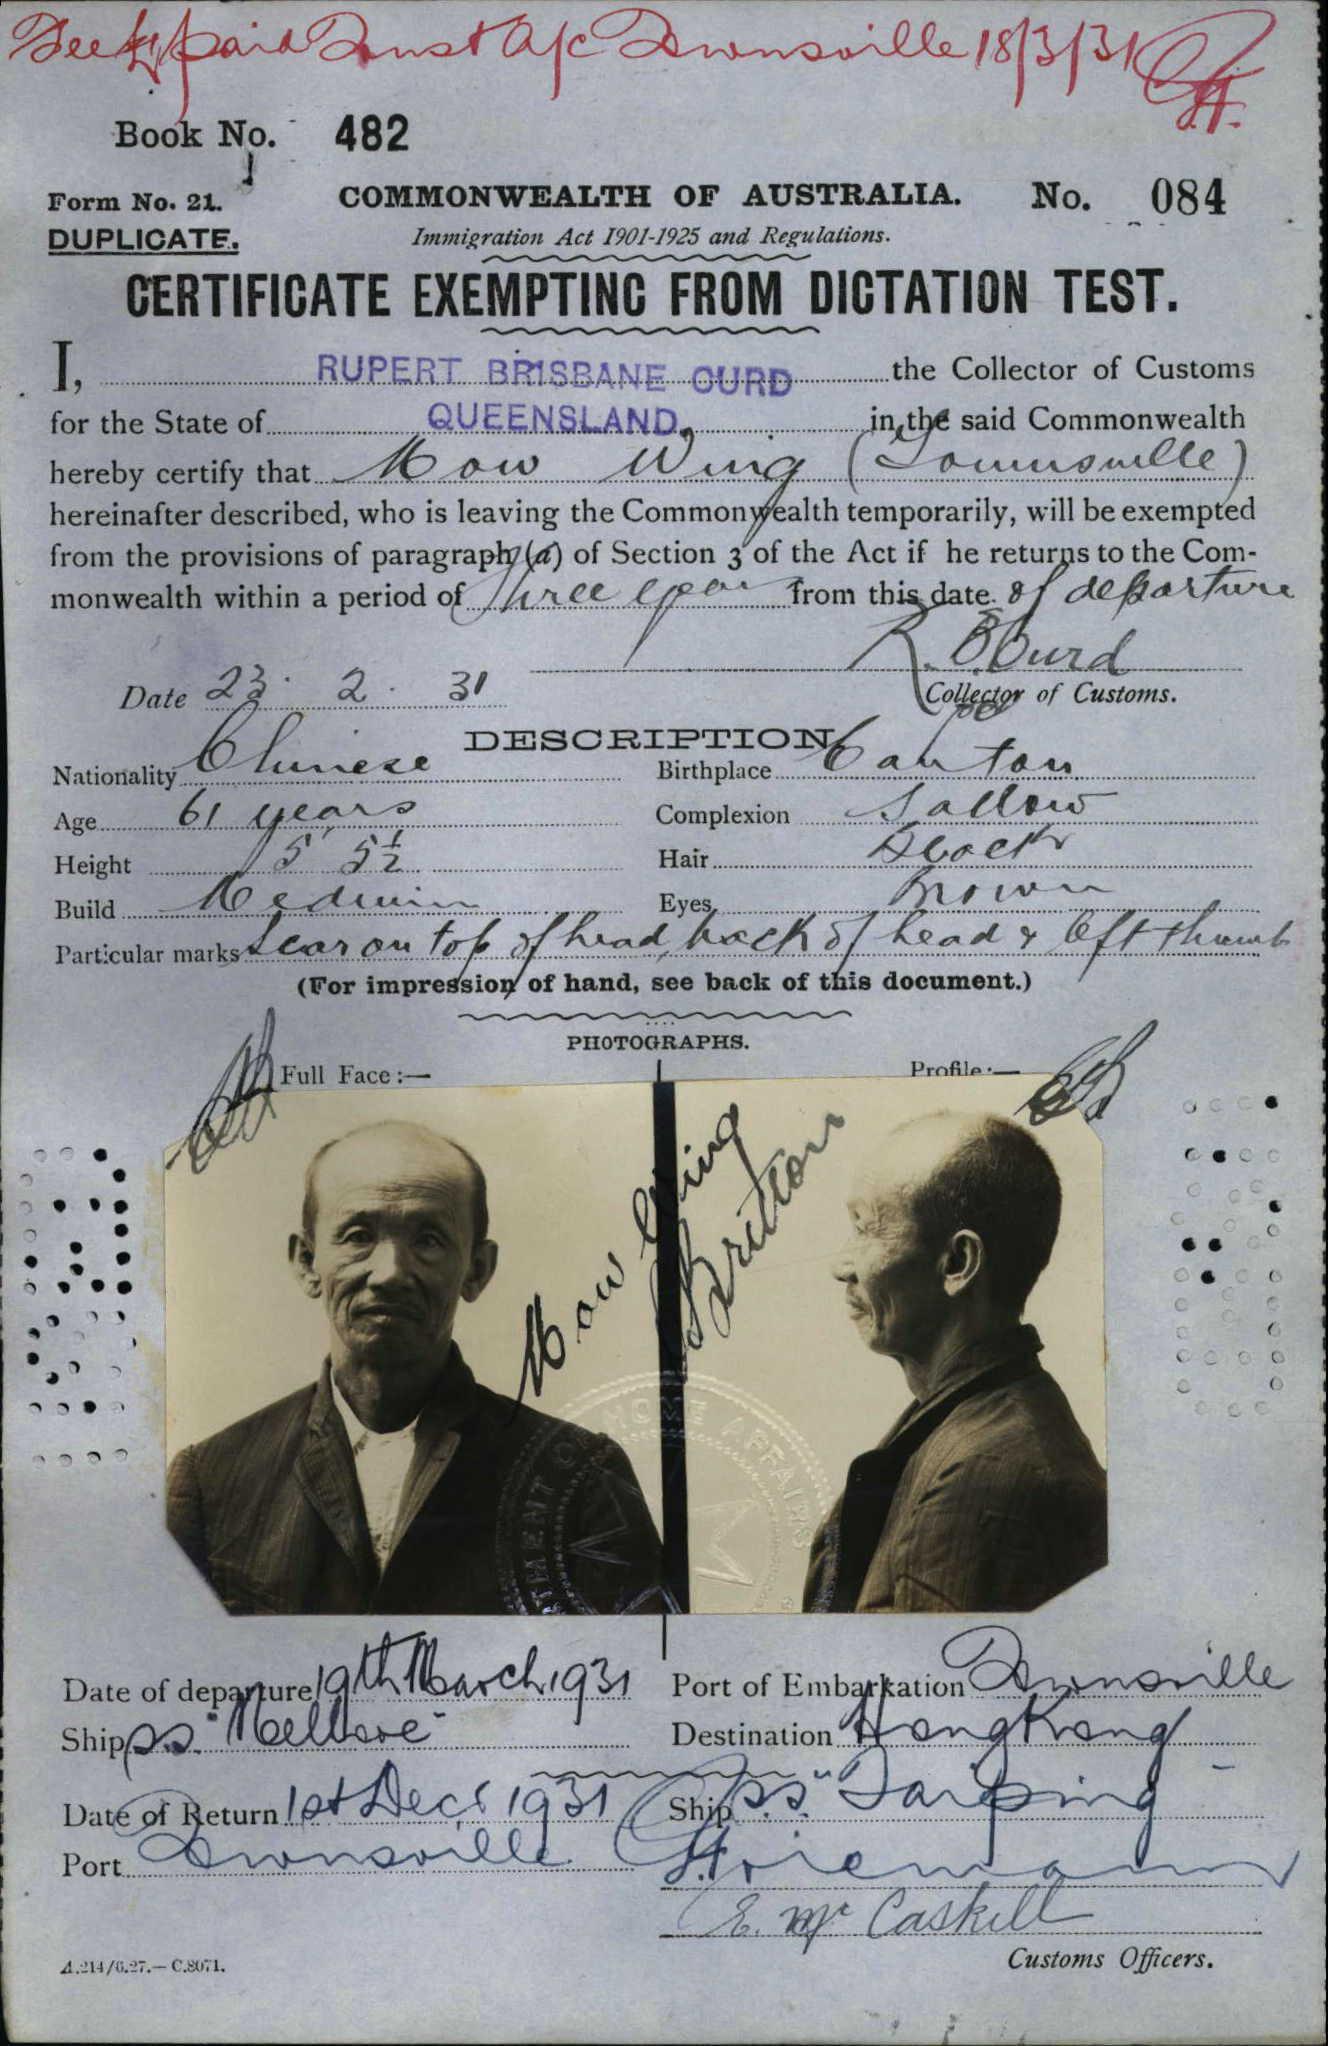 Fee £1 paid Trust A/c Townsville 18/3/31
Book No. 482
Form No. 21. COMMONWEALTH OF AUSTRALIA. No. 084
DUPLICATE. Immigration Act 1901-1925 and Regulations.
CERTIFICATE EXEMPTING FROM DICTATION TEST.
I, RUPERT BRISBANE CURD the Collector of Customs
for the State of QUEENSLAND, in the said Commonwealth
hereby certify that Mow Wing (Townsville)
hereinafter described, who is leaving the Commonwealth temporarily, will be exempted
from the provisions of paragraph (a) of Section 3 of the Act if he returns to the Com-
monwealth within a period of Three years from this date of departure
R. B. Curd
Date 23. 2. 31 Collector of Customs.
DESCRIPTION
Nationality Chinese Birthplace Canton
Age 61 years Complexion Sallow
Height 5' 5½ Hair Black
Build Medium Eyes Brown
Particular marks Scar on top of head, back of head & left thumb
(For impression of hand, see back of this document.)
PHOTOGRAPHS.
Full Face:— Profile:—
Mow Wing
Britton
HOME AFFAIRS
Date of departure 19th March 1931 Port of Embarkation Townsville
Ship s.s. "Mellore" Destination Hong Kong
Date of Return 1st Decr 1931 Ship s.s. "Taiping"
Port Townsville
E. McCaskill
Customs Officers.
A.214/6.27.—C.8071.